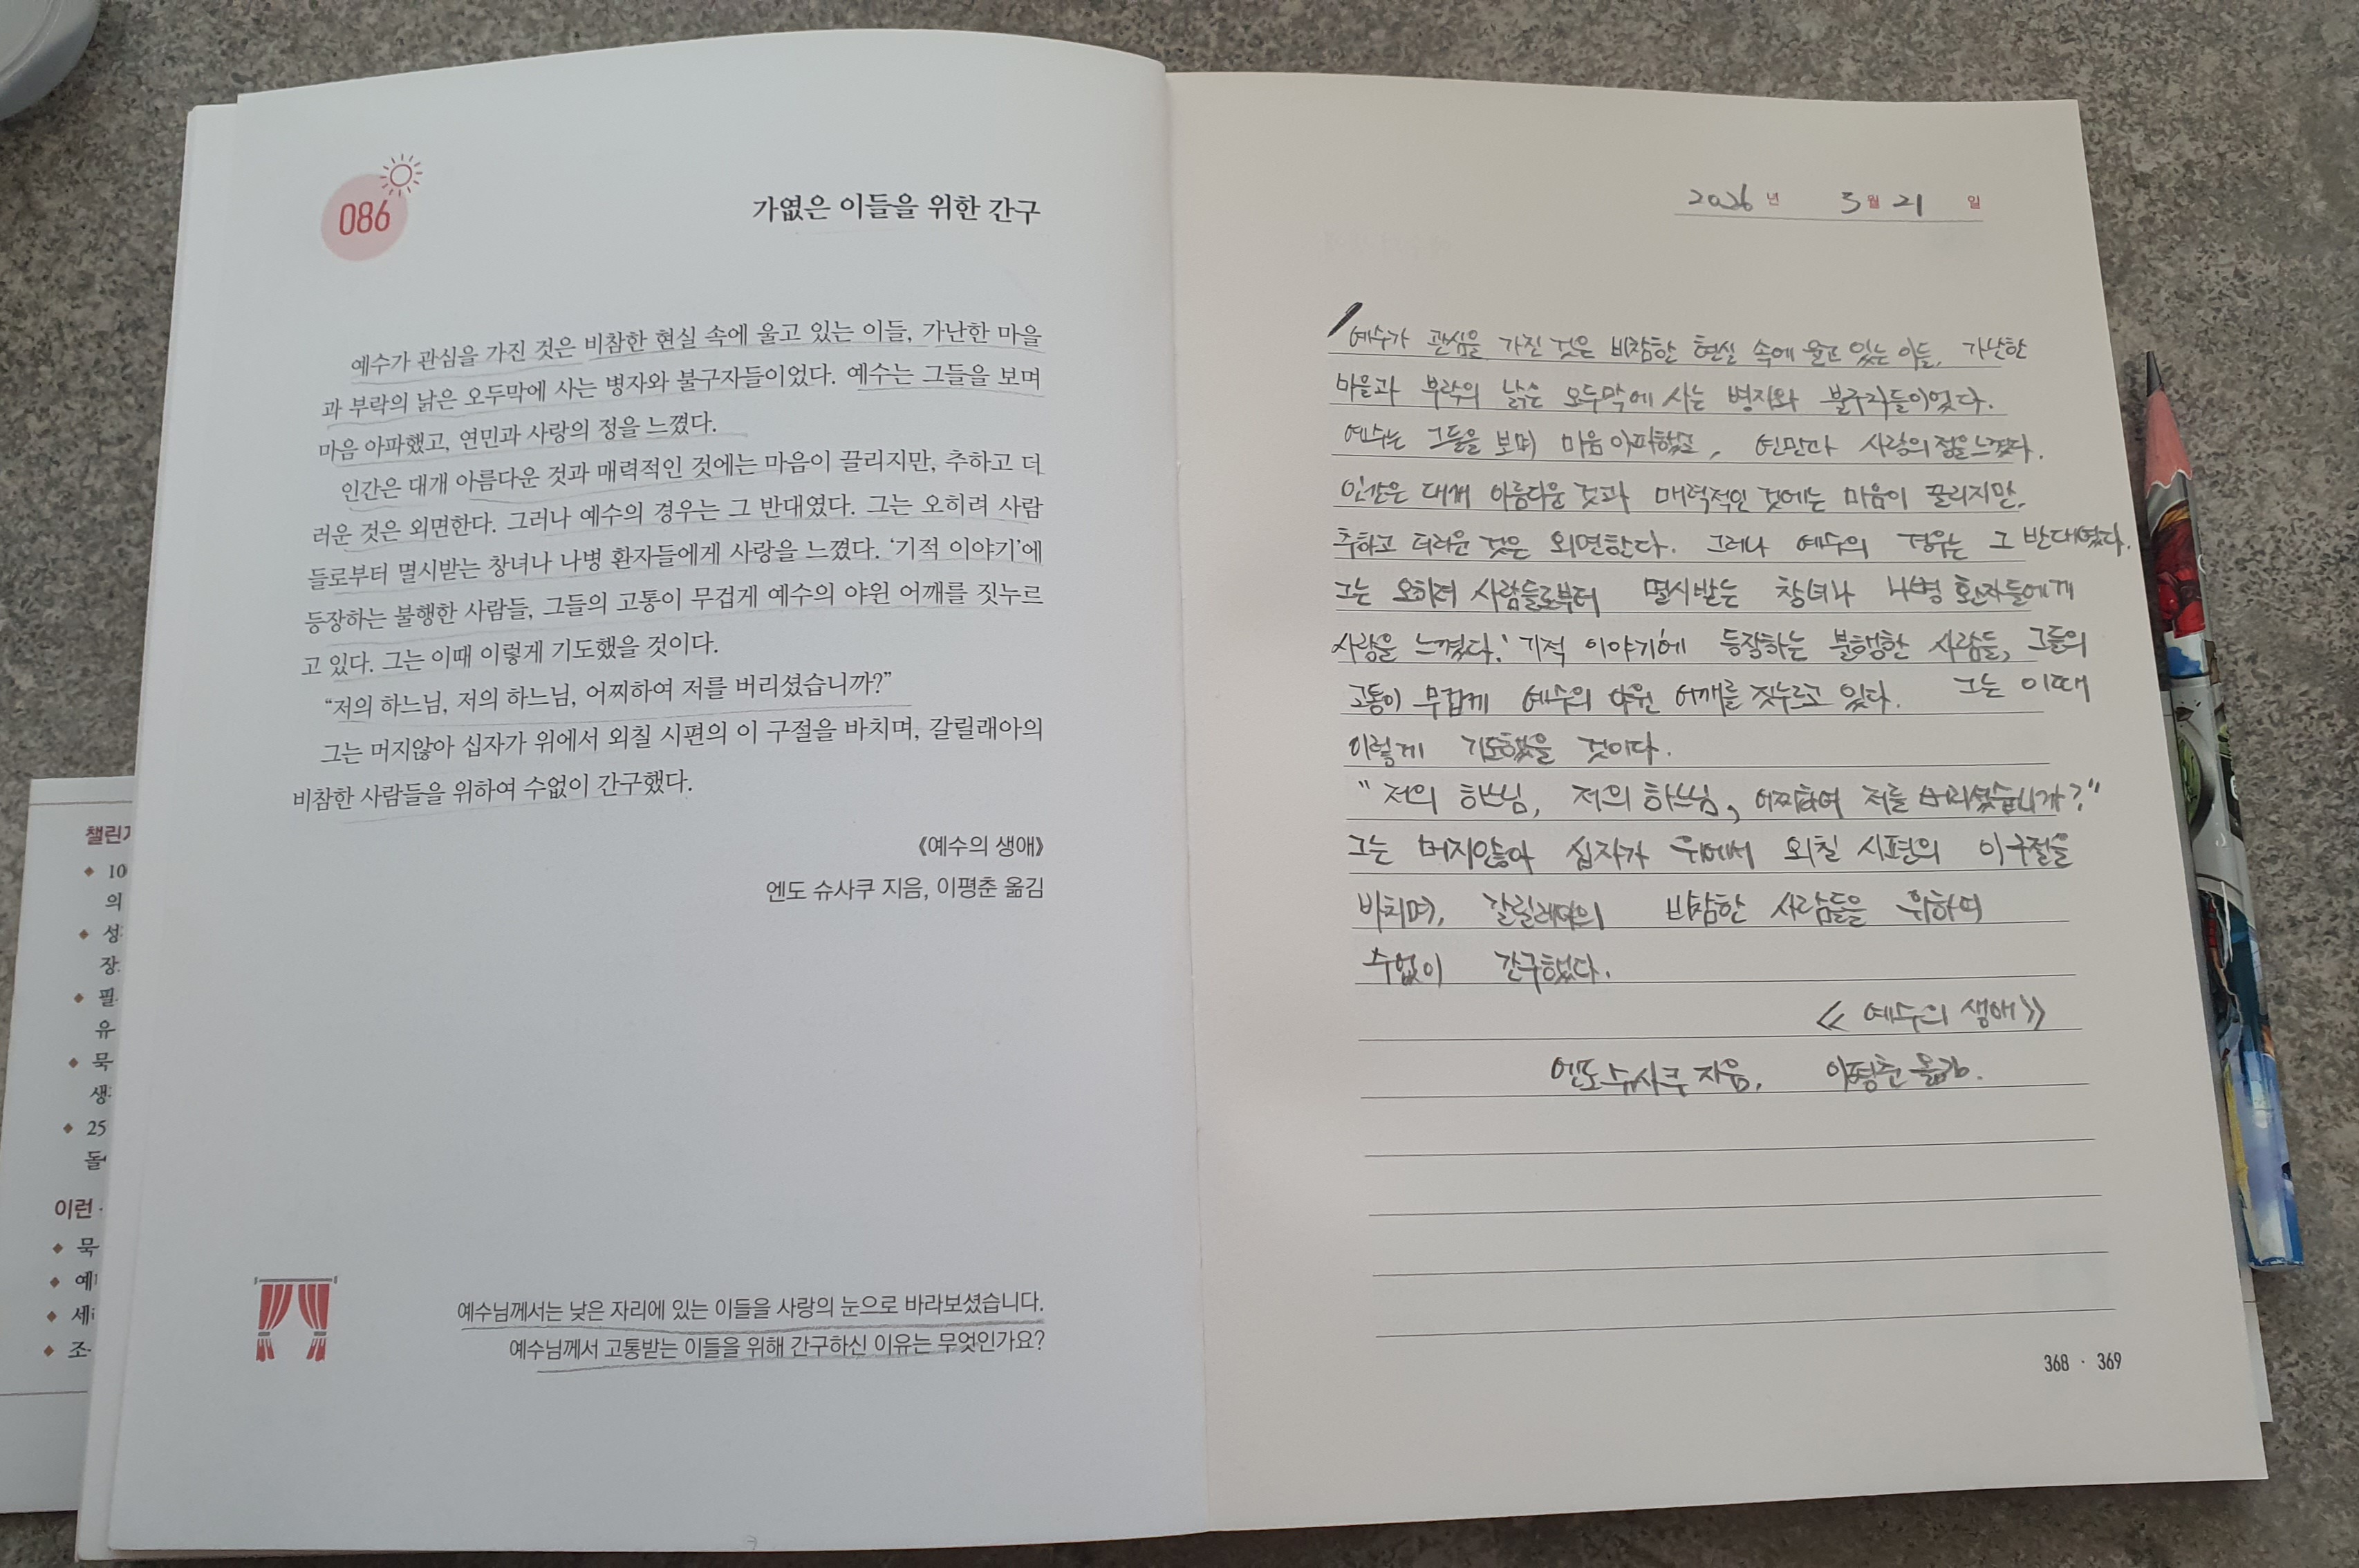 086
가엾은 이들을 위한 간구
예수가 관심을 가진 것은 비참한 현실 속에 울고 있는 이들, 가난한 마을
과 부락의 낡은 오두막에 사는 병자와 불구자들이었다. 예수는 그들을 보며
마음 아파했고, 연민과 사랑의 정을 느꼈다.
인간은 대개 아름다운 것과 매력적인 것에는 마음이 끌리지만, 추하고 더
러운 것은 외면한다. 그러나 예수의 경우는 그 반대였다. 그는 오히려 사람
들로부터 멸시받는 창녀나 나병 환자들에게 사랑을 느꼈다. ‘기적 이야기’에
등장하는 불행한 사람들, 그들의 고통이 무겁게 예수의 야윈 어깨를 짓누르
고 있다. 그는 이때 이렇게 기도했을 것이다.
“저의 하느님, 저의 하느님, 어찌하여 저를 버리셨습니까?”
그는 머지않아 십자가 위에서 외칠 시편의 이 구절을 바치며, 갈릴래아의
비참한 사람들을 위하여 수없이 간구했다.
《예수의 생애》
엔도 슈사쿠 지음, 이평춘 옮김
예수님께서는 낮은 자리에 있는 이들을 사랑의 눈으로 바라보셨습니다.
예수님께서 고통받는 이들을 위해 간구하신 이유는 무엇인가요?
챌린
10
의
성
장
필
유
묵
생
25
돌
이런
묵
예
세
조
2026년 3월 21일
예수가 관심을 가진 것은 비참한 현실 속에 울고 있는 이들, 가난한
마을과 부락의 낡은 오두막에 사는 병자와 불구자들이었다.
예수는 그들을 보며 마음 아파했고, 연민과 사랑의 정을 느꼈다.
인간은 대개 아름다운 것과 매력적인 것에는 마음이 끌리지만,
추하고 더러운 것은 외면한다. 그러나 예수의 경우는 그 반대였다.
그는 오히려 사람들로부터 멸시받는 창녀나 나병 환자들에게
사랑을 느꼈다. '기적 이야기'에 등장하는 불행한 사람들, 그들의
고통이 무겁게 예수의 야윈 어깨를 짓누르고 있다. 그는 이때
이렇게 기도했을 것이다.
"저의 하느님, 저의 하느님, 어찌하여 저를 버리셨습니까?"
그는 머지않아 십자가 위에서 외칠 시편의 이 구절을
바치며, 갈릴래아의 비참한 사람들을 위하여
수없이 간구했다.
《예수의 생애》
엔도 슈사쿠 지음, 이평춘 옮김.
368 · 369